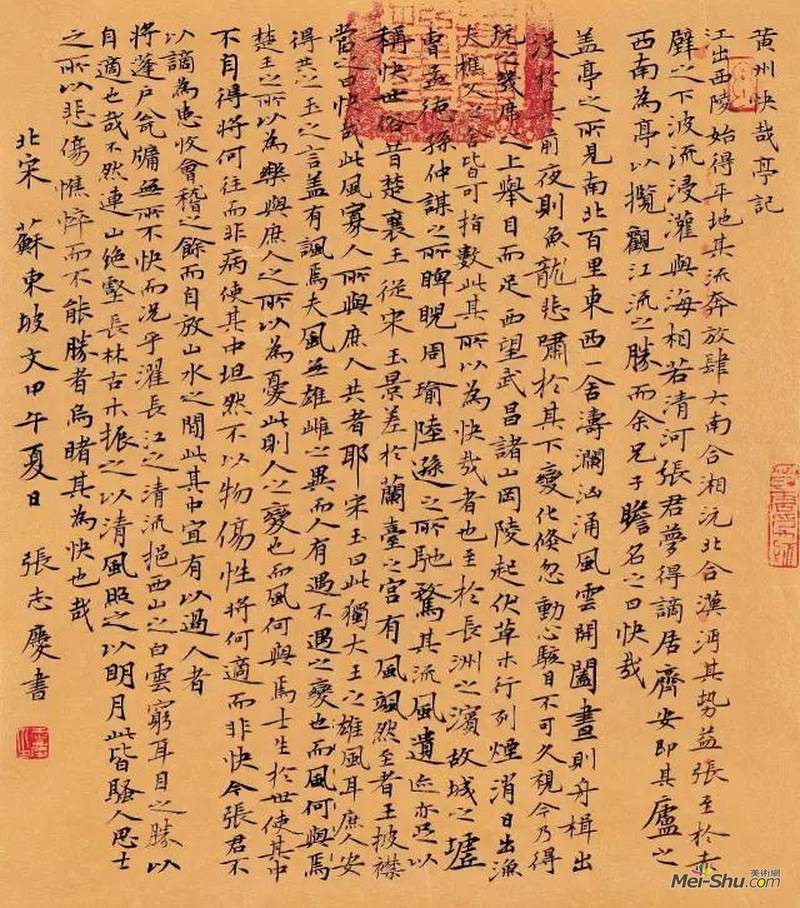 黄州快哉亭記
江出西陵始得平地其流奔放肆大南合湘沅北合漢沔其勢益張至於赤
壁之下波流浸灌與海相若清河張君夢得謫居齊安即其廬之
西南為亭以攬觀江流之勝而余兄子瞻名之曰快哉
盖亭之所見南北百里東西一舍濤瀾汹涌風雲開闔晝則舟楫出
没於其前夜則魚龍悲嘯於其下變化倏忽動心駭目不可久視今乃得
玩之幾席之上舉目而足西望武昌諸山岡陵起伏草木行列煙消日出漁
夫樵人之舍皆可指數此其所以為快哉者也至於長洲之濱故城之墟
曹孟德孫仲謀之所睥睨周瑜陸遜之所馳騖其流風遺迹亦足以
稱快世俗昔楚襄王從宋玉景差於蘭臺之宮有風颯然至者王披襟
當之曰快哉此風寡人所與庶人共者耶宋玉曰此獨大王之雄風耳庶人安
得共之玉之言盖有諷焉夫風無雄雌之異而人有遇不遇之變也而風何與焉
楚王之所以為樂與庶人之所以為憂此則人之變也而風何與焉士生於世使其中
不自得將何往而非病使其中坦然不以物傷性將何適而非快今張君不
以謫為患收會稽之餘而自放山水之間此其中宜有以過人者
將蓬戶瓮牖無所不快而況乎濯長江之清流挹西山之白雲窮耳目之勝以
自適也哉不然連山绝壑長林古木振之以清風照之以明月此皆騷人思士
之所以悲傷憔悴而不能勝者烏睹其為快也哉
北宋 蘇東坡文甲午夏日 張志慶書
美術網
Mei-Shu.com